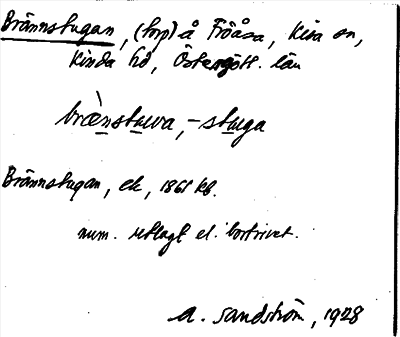 Brännstugan, (torp) å Fröåsa, Kisa sn,
Kinda hd, Östergötl. län
brænstuwa, -stuga
Brännstugan, ek, 1868 kb.
num. utlagt el. bortrivet.
A. Sandström, 1928